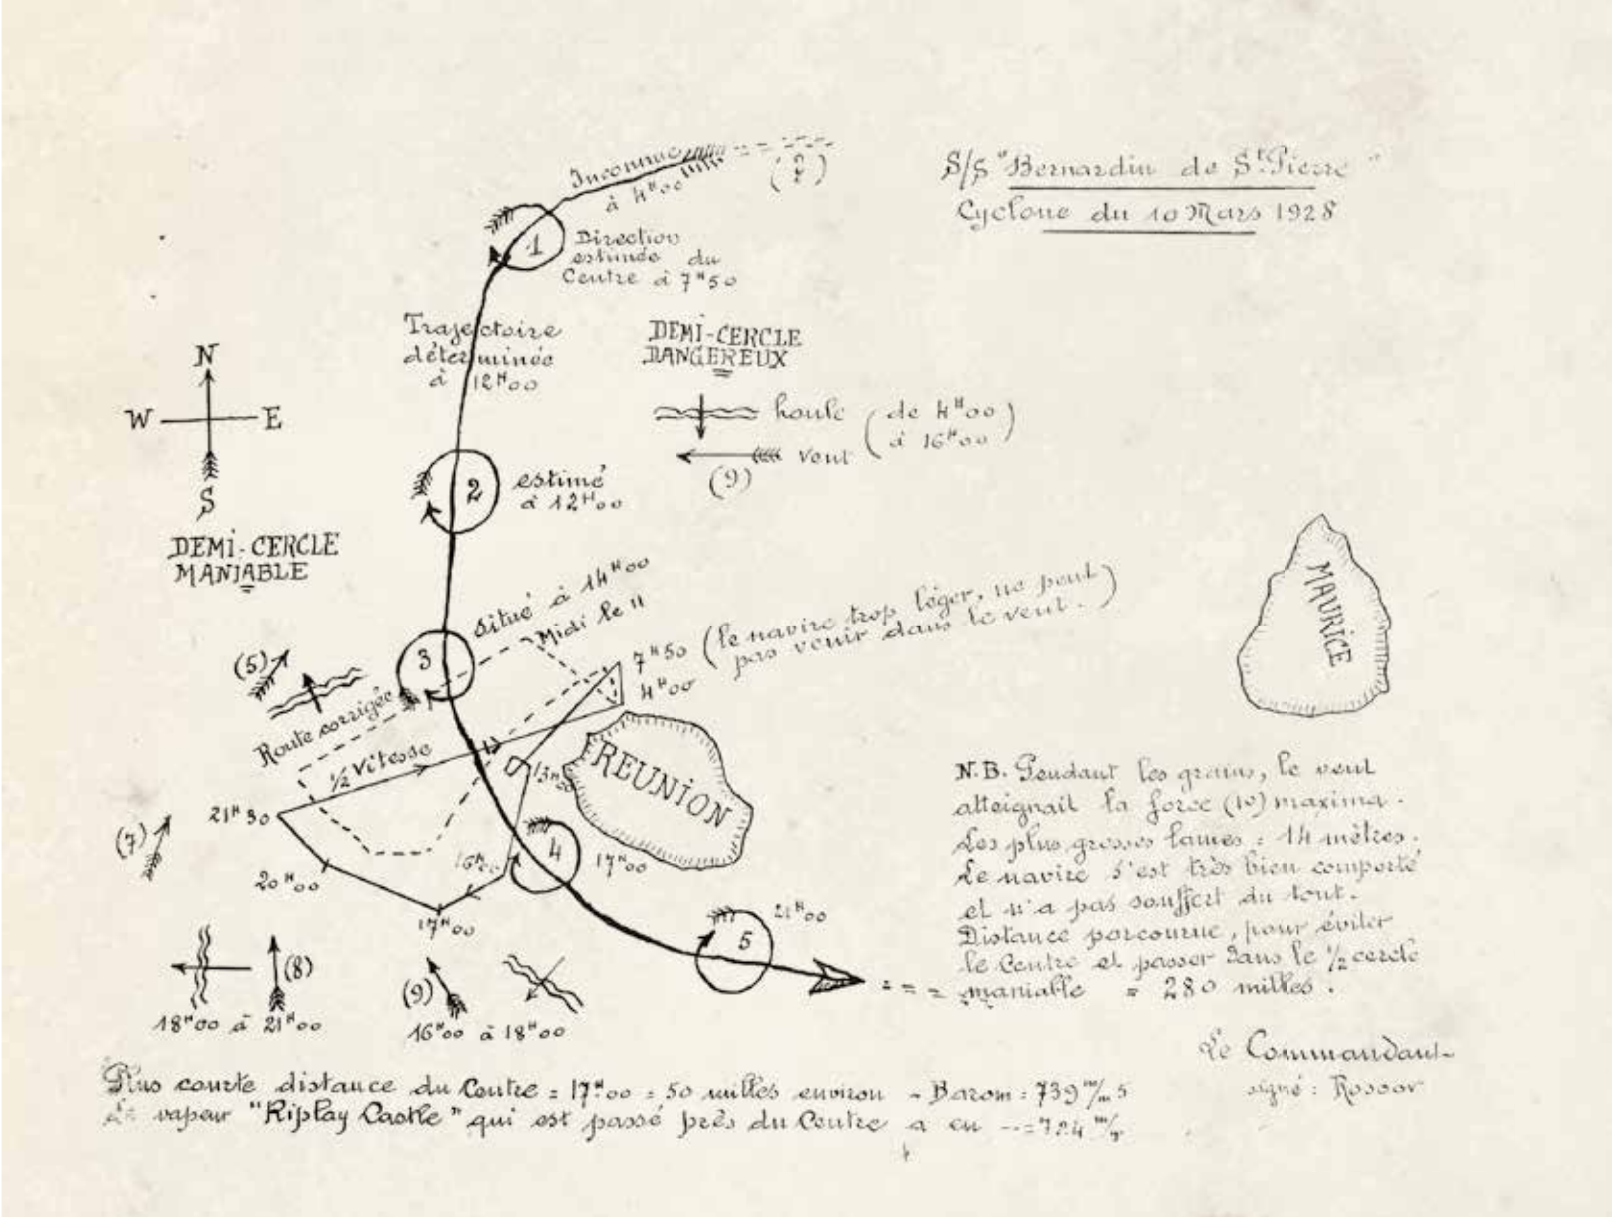 S/S "Bernardin de St. Pierre"
Cyclone du 10 Mars 1928
Inconnue
à 4H00
(?)
1
Direction
estimée du
Centre à 7H50
Trajectoire
déterminée
à 12H00
DEMI-CERCLE
DANGEREUX
houle
vent
(de 4H00
à 16H00)
(9)
N
W E
S
DEMI-CERCLE
MANIABLE
2
estimé
à 12H00
Situé à 14H00
Midi le 11
3
7H50 (le navire trop léger, ne peut
pas venir dans le vent.)
4H00
(5)
Route corrigée
1/2 Vitesse
MAURICE
REUNION
13H00
21H30
(7)
20H00
16H00
17H00
4
17H00
5
21H00
(8)
18H00 à 21H00
(9)
16H00 à 18H00
N.B. Pendant les grains, le vent
atteignait la force (10) maxima.
Les plus grosses lames = 14 mètres.
Le navire s'est très bien comporté
et n'a pas souffert du tout.
Distance parcourue, pour éviter
le Centre et passer dans le 1/2 cercle
maniable = 280 milles.
Le Commandant
signé :
Plus courte distance du Centre = 17H00 = 50 milles environ - Barom : 739 m/m 5
Le vapeur "Riplay Castle" qui est passé près du Centre a eu --= 724 m/m